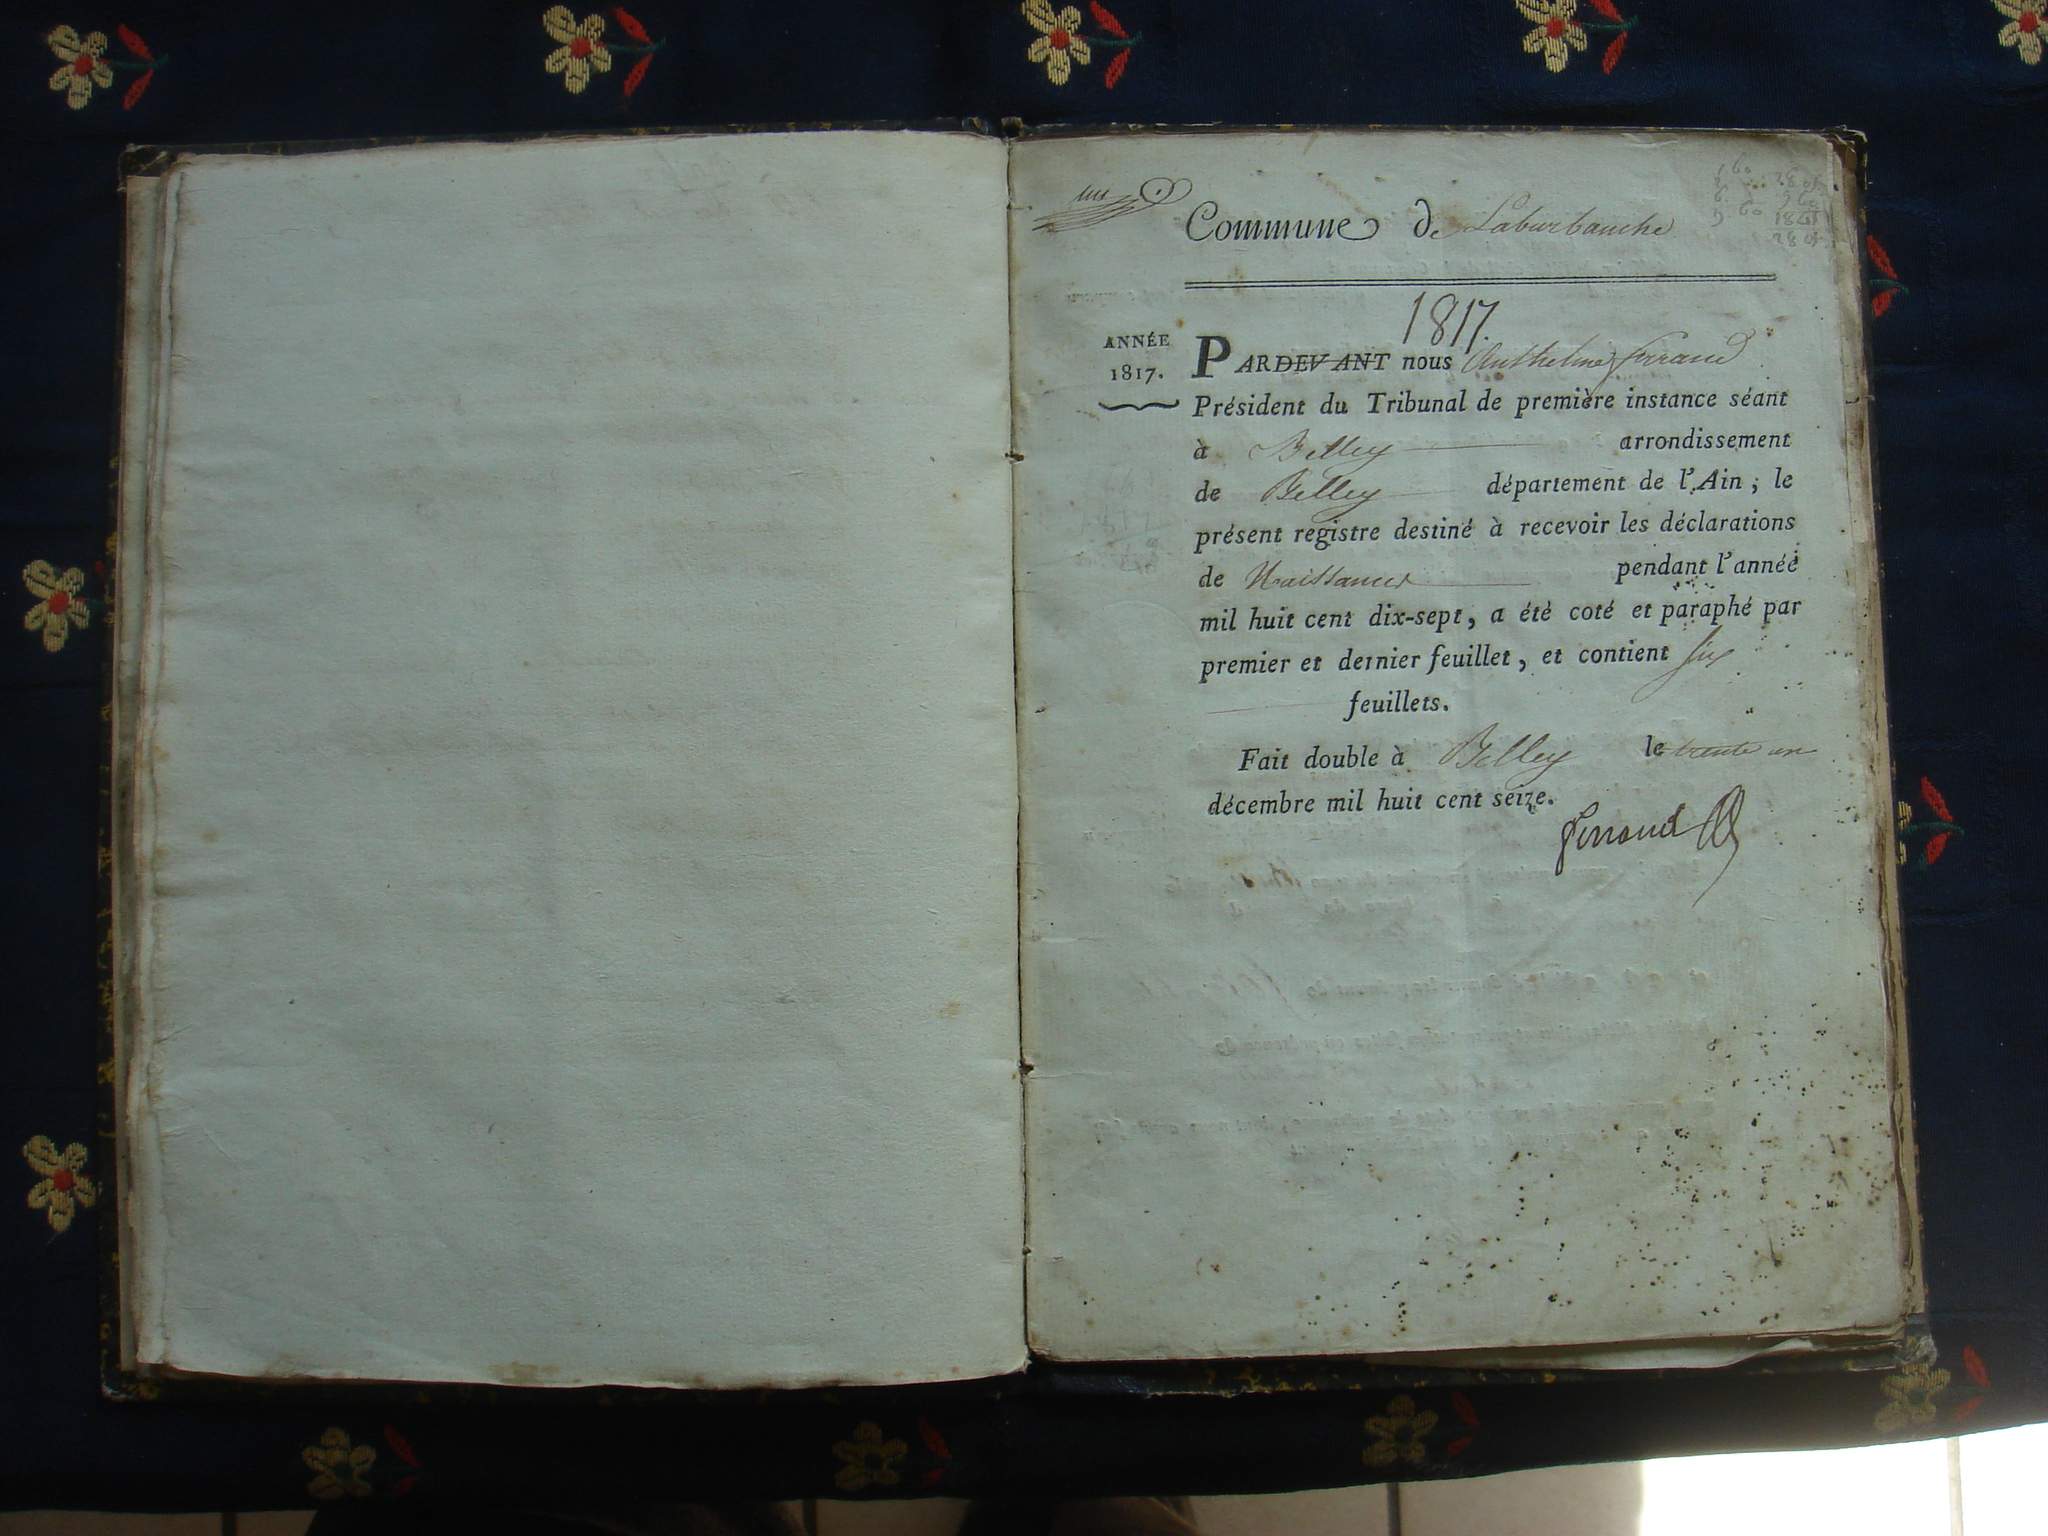 Commune de Laburbanche
1817.
ANNÉE
1817.
PARDEVANT nous Anthelme Ferrand
Président du Tribunal de première instance séant
à Belley arrondissement
de Belley département de l'Ain ; le
présent registre destiné à recevoir les déclarations
de Naissances pendant l'année
mil huit cent dix-sept, a été coté et paraphé par
premier et dernier feuillet, et contient six
feuillets.
Fait double à Belley le trente un
décembre mil huit cent seize.
Ferrand